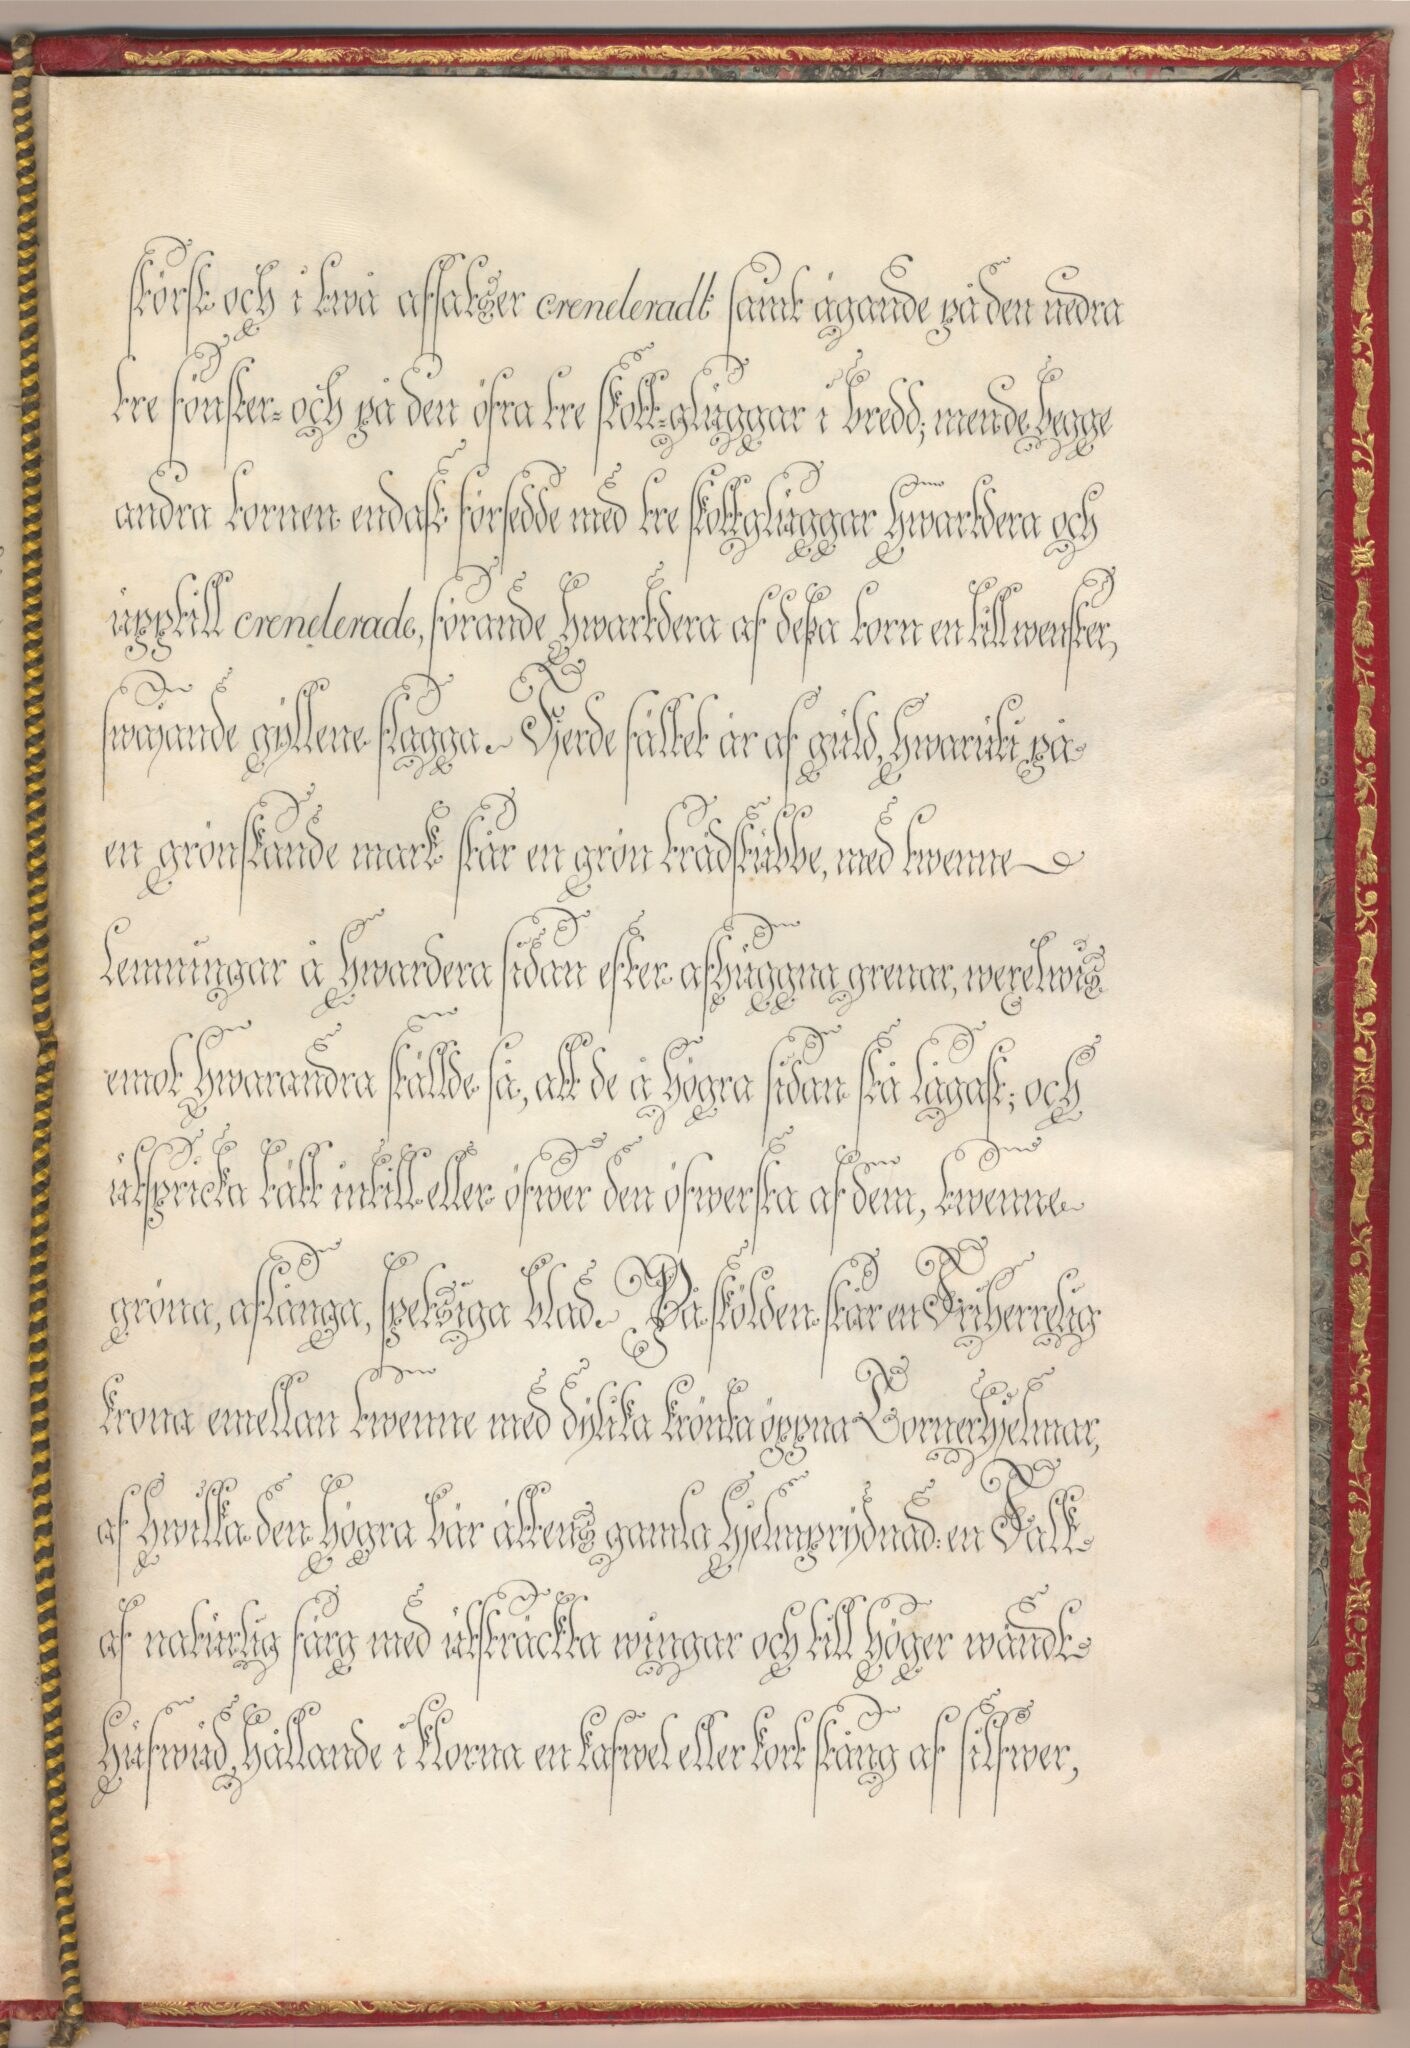 störst och i twå affatzer creneleradt samt ägande på den nedra
tre fönster- och på den öfra tre skott-gluggar i bredd; men de begge
andra tornen endast försedde med tre skottgluggar hwartdera och
upptill crenelerade, förande hwartdera af dessa torn en till wenster,
swajande gyllene flagga. Fjerde fältet är af guld, hwaruti på
en grönskande mark står en grön trädstubbe, med twenne
lemningar å hwardera sidan efter afhuggna grenar, wexelwis
emot hwarandra stälde så, att de å högra sidan stå lägast; och
utspricka tätt intill eller öfwer den öfwersta af dem, twenne
gröna, aflånga, spetziga blad. På skölden står en Friherrelig
krona emellan twenne med dylika krönta öppna Tornerhjelmar,
af hwilka den högra bär ättens gamla hjelmprydnad: en Falk
af naturlig färg med utsträckta wingar och till höger wändt
hufwud, hållande i klorna en tafwel eller kort stång af silfwer,